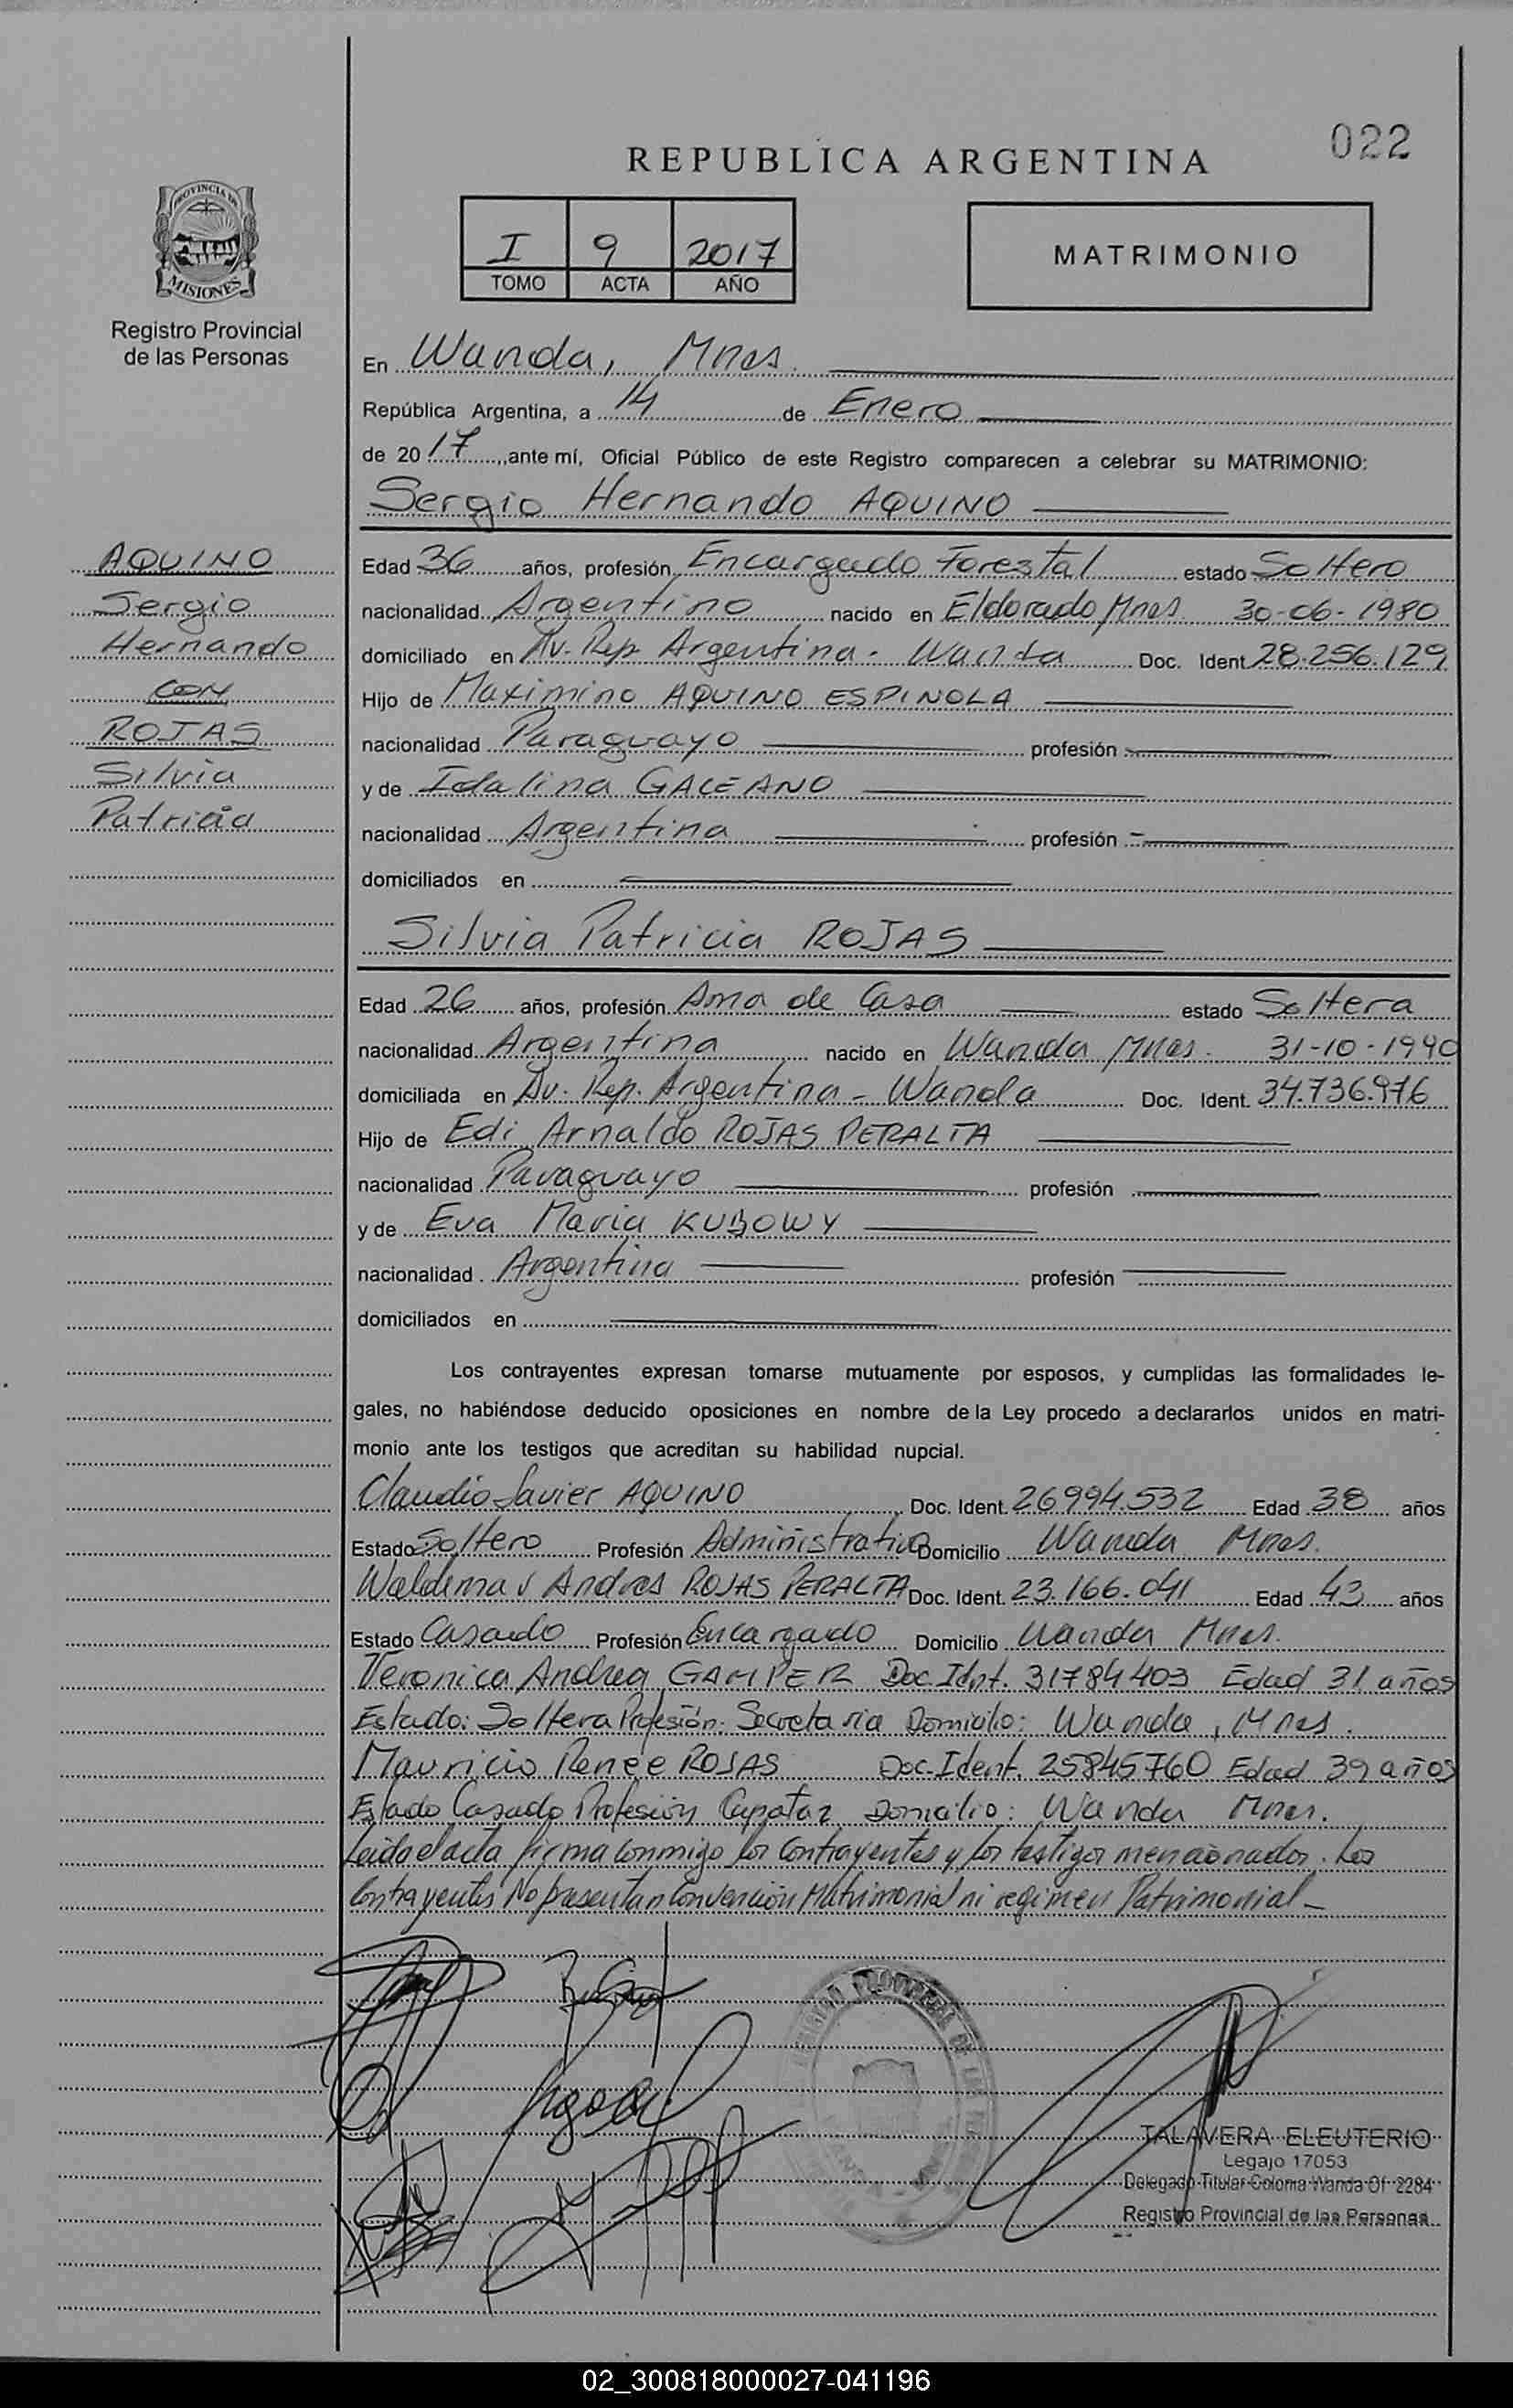 022
REPUBLICA ARGENTINA
I 9 2017
TOMO ACTA AÑO
MATRIMONIO
PROVINCIA DE
MISIONES
Registro Provincial
de las Personas
En Wanda, Mnes.
República Argentina, a 14 de Enero
de 2017, ante mí, Oficial Público de este Registro comparecen a celebrar su MATRIMONIO:
Sergio Hernando AQUINO
AQUINO
Sergio
Hernando
CON
ROJAS
Silvia
Patricia
Edad 36 años, profesión Encargado Forestal estado Soltero
nacionalidad Argentino nacido en Eldorado Mnes. 30-06-1980
domiciliado en Av. Rep. Argentina - Wanda Doc. Ident. 28.256.129
Hijo de Maximino AQUINO ESPINOLA
nacionalidad Paraguayo profesión
y de Idalina GALEANO
nacionalidad Argentina profesión
domiciliados en
Silvia Patricia ROJAS
Edad 26 años, profesión Ama de Casa estado Soltera
nacionalidad Argentina nacido en Wanda Mnes. 31-10-1990
domiciliada en Av. Rep. Argentina - Wanda Doc. Ident. 34.736.976
Hijo de Edi Arnaldo ROJAS PERALTA
nacionalidad Paraguayo profesión
y de Eva Maria KUBOWY
nacionalidad Argentina profesión
domiciliados en
Los contrayentes expresan tomarse mutuamente por esposos, y cumplidas las formalidades le-
gales, no habiéndose deducido oposiciones en nombre de la Ley procedo a declararlos unidos en matri-
monio ante los testigos que acreditan su habilidad nupcial.
Claudio Javier AQUINO Doc. Ident. 26994.532 Edad 38 años
Estado Soltero Profesión Administrativo Domicilio Wanda Mnes.
Waldemar Andres ROJAS PERALTA Doc. Ident. 23.166.041 Edad 43 años
Estado Casado Profesión Encargado Domicilio Wanda Mnes.
Veronica Andrea GAMPER Doc. Idnt. 31784403 Edad 31 años
Estado: Soltera Profesión: Secretaria Domicilio: Wanda, Mnes.
Mauricio Renee ROJAS Doc. Ident. 25845760 Edad 39 años
Estado Casado Profesión Capataz Domicilio: Wanda Mnes.
Leida el acta firma conmigo los contrayentes y los testigos mencionados. Los
Contrayentes No presentan Convención Matrimonial ni regimen Patrimonial -
TALAVERA ELEUTERIO
Legajo 17053
Delegado Titular Colonia Wanda Of 2284
Registro Provincial de las Personas
02_300818000027-041196